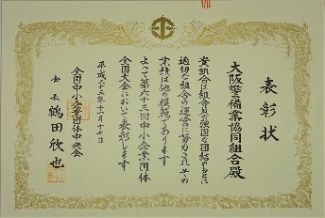 表彰状
大阪警備業協同組合殿
貴組合は組合員の強固な団結のもとに
適切な組合の運営に努力されその
業績は他の模範であります
よって第六十三回中小企業団体
全国大会において表彰します
平成二十三年十一月十七日
全国中小企業団体中央会
会長 鶴田欣也